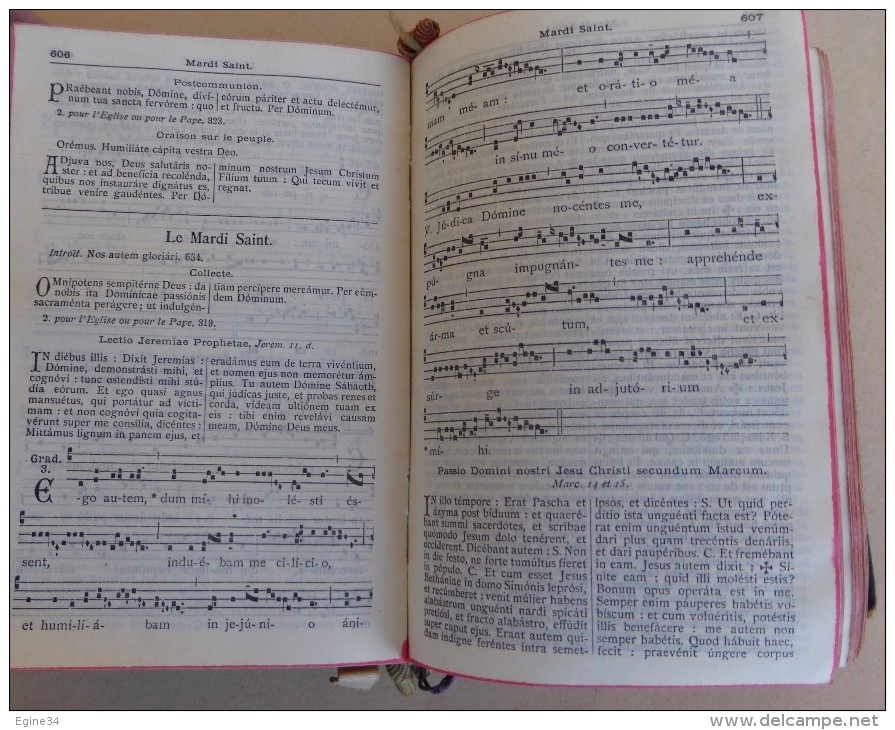 606
Mardi Saint.
Postcommunion.
PRaébeant nobis, Dómine, diví-
num tua sancta fervórem : quo
eórum páriter et actu delectémur,
et fructu. Per Dóminum.
2. pour l'Eglise ou pour le Pape, 323.
Oraison sur le peuple.
Orémus. Humiliáte cápita vestra Deo.
ADjuva nos, Deus salutáris no-
ster : et ad benefícia recolénda,
quibus nos instauráre dignátus es,
tríbue veníre gaudéntes. Per Dó-
minum nostrum Jesum Christum
Fílium tuum : Qui tecum vivit et
regnat.
Le Mardi Saint.
Introït. Nos autem gloriári. 654.
Collecte.
OMnípotens sempitérne Deus : da
nobis ita Domínicae passiónis
sacraménta perágere; ut indulgén-
tiam percípere mereámur. Per eúm-
dem Dóminum.
2. pour l'Eglise ou pour le Pape, 319.
Lectio Jeremiae Prophetae, Jerem. 11. d.
IN diébus illis : Dixit Jeremías :
Dómine, demonstrásti mihi, et
cognóvi : tunc ostendísti mihi stú-
dia eórum. Et ego quasi agnus
mansuétus, qui portátur ad vícti-
mam : et non cognóvi quia cogita-
vérunt super me consília, dicéntes :
Mittámus lignum in panem ejus, et
eradámus eum de terra vivéntium,
et nomen ejus non memorétur ám-
plius. Tu autem Dómine Sábaoth,
qui júdicas juste, et probas renes et
corda, vídeam ultiónem tuam ex
eis : tibi enim revelávi causam
meam, Dómine Deus meus.
Grad.
3.
E -go autem, * dum mí- hi mo- lé- sti és-
sent, indu-é- bam me ci-lí-ci-o,
et humi-li-á- bam in je-jú-ni- o áni-
607
Mardi Saint.
mam mé-am : et o-rá-ti-o mé- a
in sí-nu mé- o con-ver-té-tur.
V. Jú-di-ca Dómine no-céntes me, ex-
pú- gna impugnán- tes me : apprehénde
árma et scú- tum, et ex-
súr- ge in ad-jutó- ri-um
mí- hi.
Passio Domini nostri Jesu Christi secundum Marcum.
Marc. 14 et 15.
IN illo témpore : Erat Pascha et
ázyma post bíduum : et quaeré-
bant summi sacerdótes, et scribae
quómodo Jesum dolo tenérent, et
occíderent. Dicébant autem : S. Non
in die festo, ne forte tumúltus fíeret
in pópulo. C. Et cum esset Jesus
Bethániae in domo Simónis leprósi,
et recúmberet : venit múlier habens
alabástrum unguénti nardi spicáti
pretiósi, et fracto alabástro, effúdit
super caput ejus. Erant autem qui-
dam indígne feréntes intra semet-
ípsos, et dicéntes : S. Ut quid per-
dítio ista unguénti facta est? Póte-
rat enim unguéntum istud venúm-
dari plus quam trecéntis denáriis,
et dari paupéribus. C. Et fremébant
in eam. Jesus autem dixit : ✠ Sí-
nite eam : quid illi molésti estis?
Bonum opus operáta est in me.
Semper enim páuperes habétis vo-
bíscum : et cum voluéritis, potéstis
illis benefácere : me autem non
semper habétis. Quod hábuit haec,
fecit : praevénit úngere corpus
Egine34
www.delcampe.net